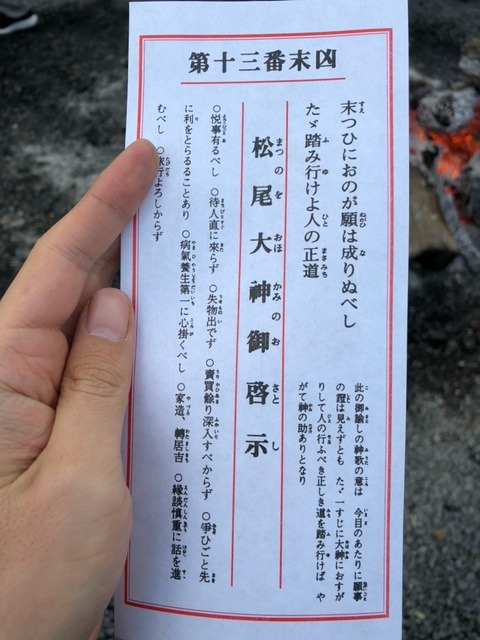 第十三番末凶
末つひにおのが願は成りぬべし
たゞ踏み行けよ人の正道
此の御諭しの神歌の意は 今目のあたりに願事
の證は見えずとも たゞ一すじに大神におすが
りして人の行ふべき正しき道を踏み行けば や
がて神の助ありとなり
松尾大神御啓示
○悦事有るべし ○待人直に來らず ○失物出でず ○賣買餘り深入すべからず ○爭ひごと先
に利をとらるることあり ○病氣養生第一に心掛くべし ○家造、轉居吉 ○縁談慎重に話を進
むべし ○旅行よろしからず